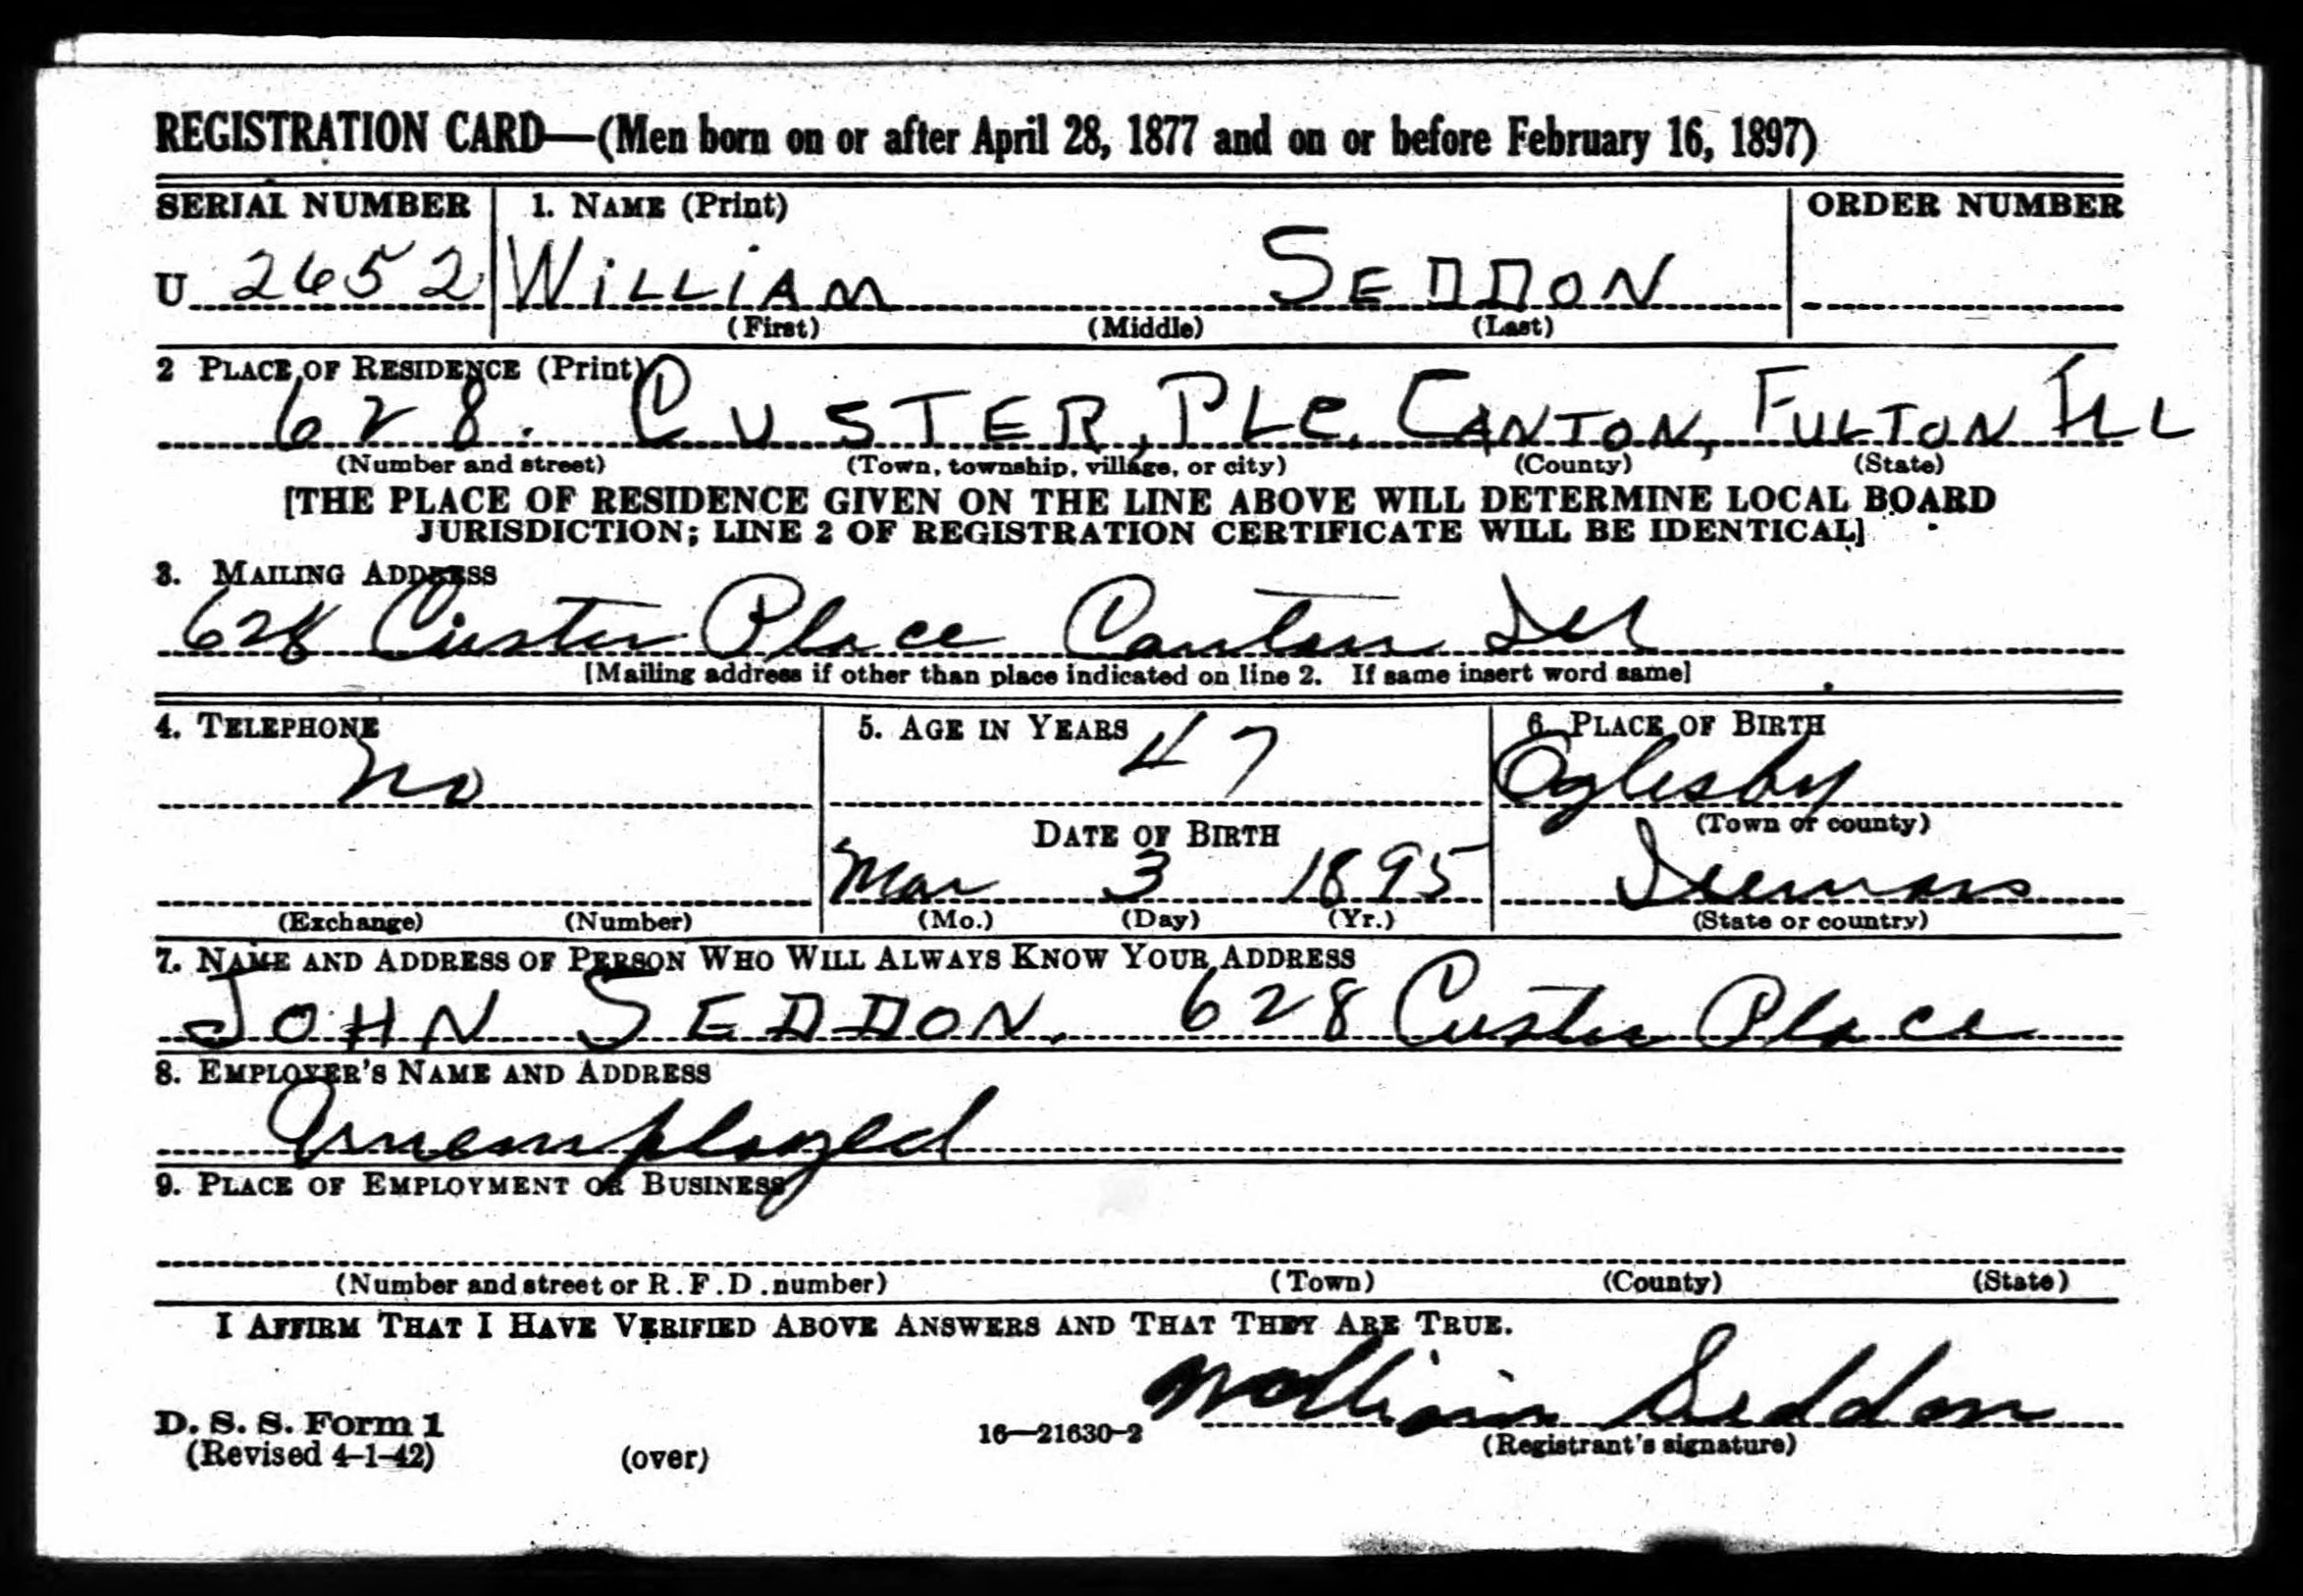 REGISTRATION CARD—(Men born on or after April 28, 1877 and on or before February 16, 1897)
SERIAL NUMBER 1. NAME (Print) ORDER NUMBER
U 2652 WILLIAM SEDDON
(First) (Middle) (Last)
2 PLACE OF RESIDENCE (Print)
628. CUSTER, PLC. CANTON, FULTON ILL
(Number and street) (Town, township, village, or city) (County) (State)
[THE PLACE OF RESIDENCE GIVEN ON THE LINE ABOVE WILL DETERMINE LOCAL BOARD
JURISDICTION; LINE 2 OF REGISTRATION CERTIFICATE WILL BE IDENTICAL]
3. MAILING ADDRESS
628 Custer Place Canton Ill
[Mailing address if other than place indicated on line 2. If same insert word same]
4. TELEPHONE 5. AGE IN YEARS 6. PLACE OF BIRTH
no 47 Oglesby
DATE OF BIRTH (Town or county)
Mar 3 1895 Illinois
(Exchange) (Number) (Mo.) (Day) (Yr.) (State or country)
7. NAME AND ADDRESS OF PERSON WHO WILL ALWAYS KNOW YOUR ADDRESS
JOHN SEDDON. 628 Custer Place
8. EMPLOYER'S NAME AND ADDRESS
Unemployed
9. PLACE OF EMPLOYMENT OR BUSINESS
(Number and street or R.F.D. number) (Town) (County) (State)
I AFFIRM THAT I HAVE VERIFIED ABOVE ANSWERS AND THAT THEY ARE TRUE.
William Seddon
D. S. S. Form 1
(Revised 4-1-42) (over) 16—21630-2 (Registrant's signature)